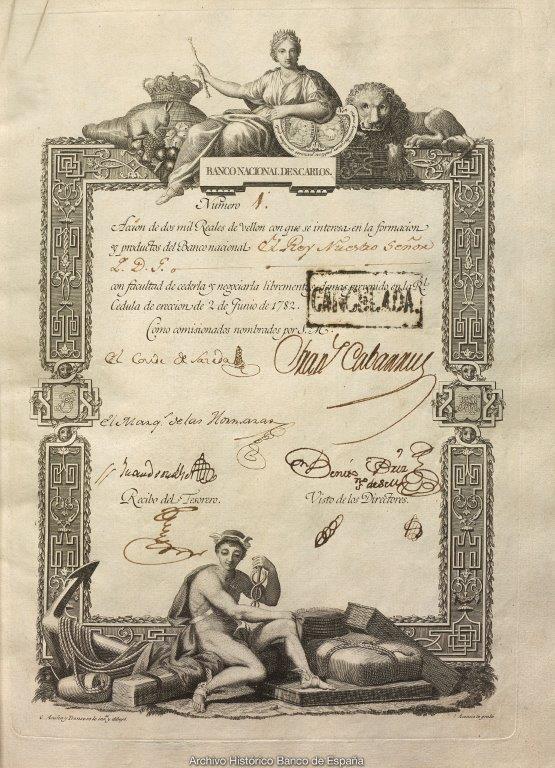 BANCO NACIONAL DE S. CARLOS.
Numero 1.
Acción de dos mil Reales de vellon con que se interesa en la formacion
y productos del Banco nacional El Rey Nuestro Señor
Q. D. G.
con facultad de cederla y negociarla libremente y demas prevenido en la Rl.
CANCELADA.
Cedula de ereccion de 2 de Junio de 1782.
Como comisionados nombrados por S. M.
El Conde de
Cabarrus
El Marqs. de las Hormazas
Recibo del Tesorero.
Visto de los Directores.
Archivo Histórico Banco de España